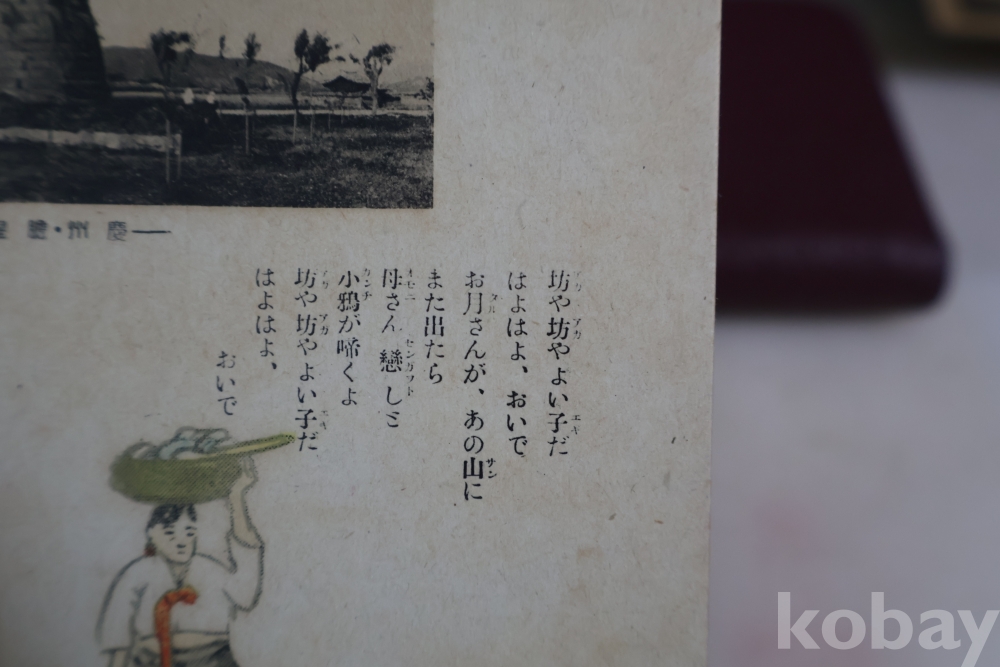 坊や坊やよい子だ
はよはよ、おいで
お月さんが、あの山に
また出たら
母さん 戀しと
小鴉が啼くよ
坊や坊やよい子だ
はよはよ、
おいで
慶州・瞻
kobay